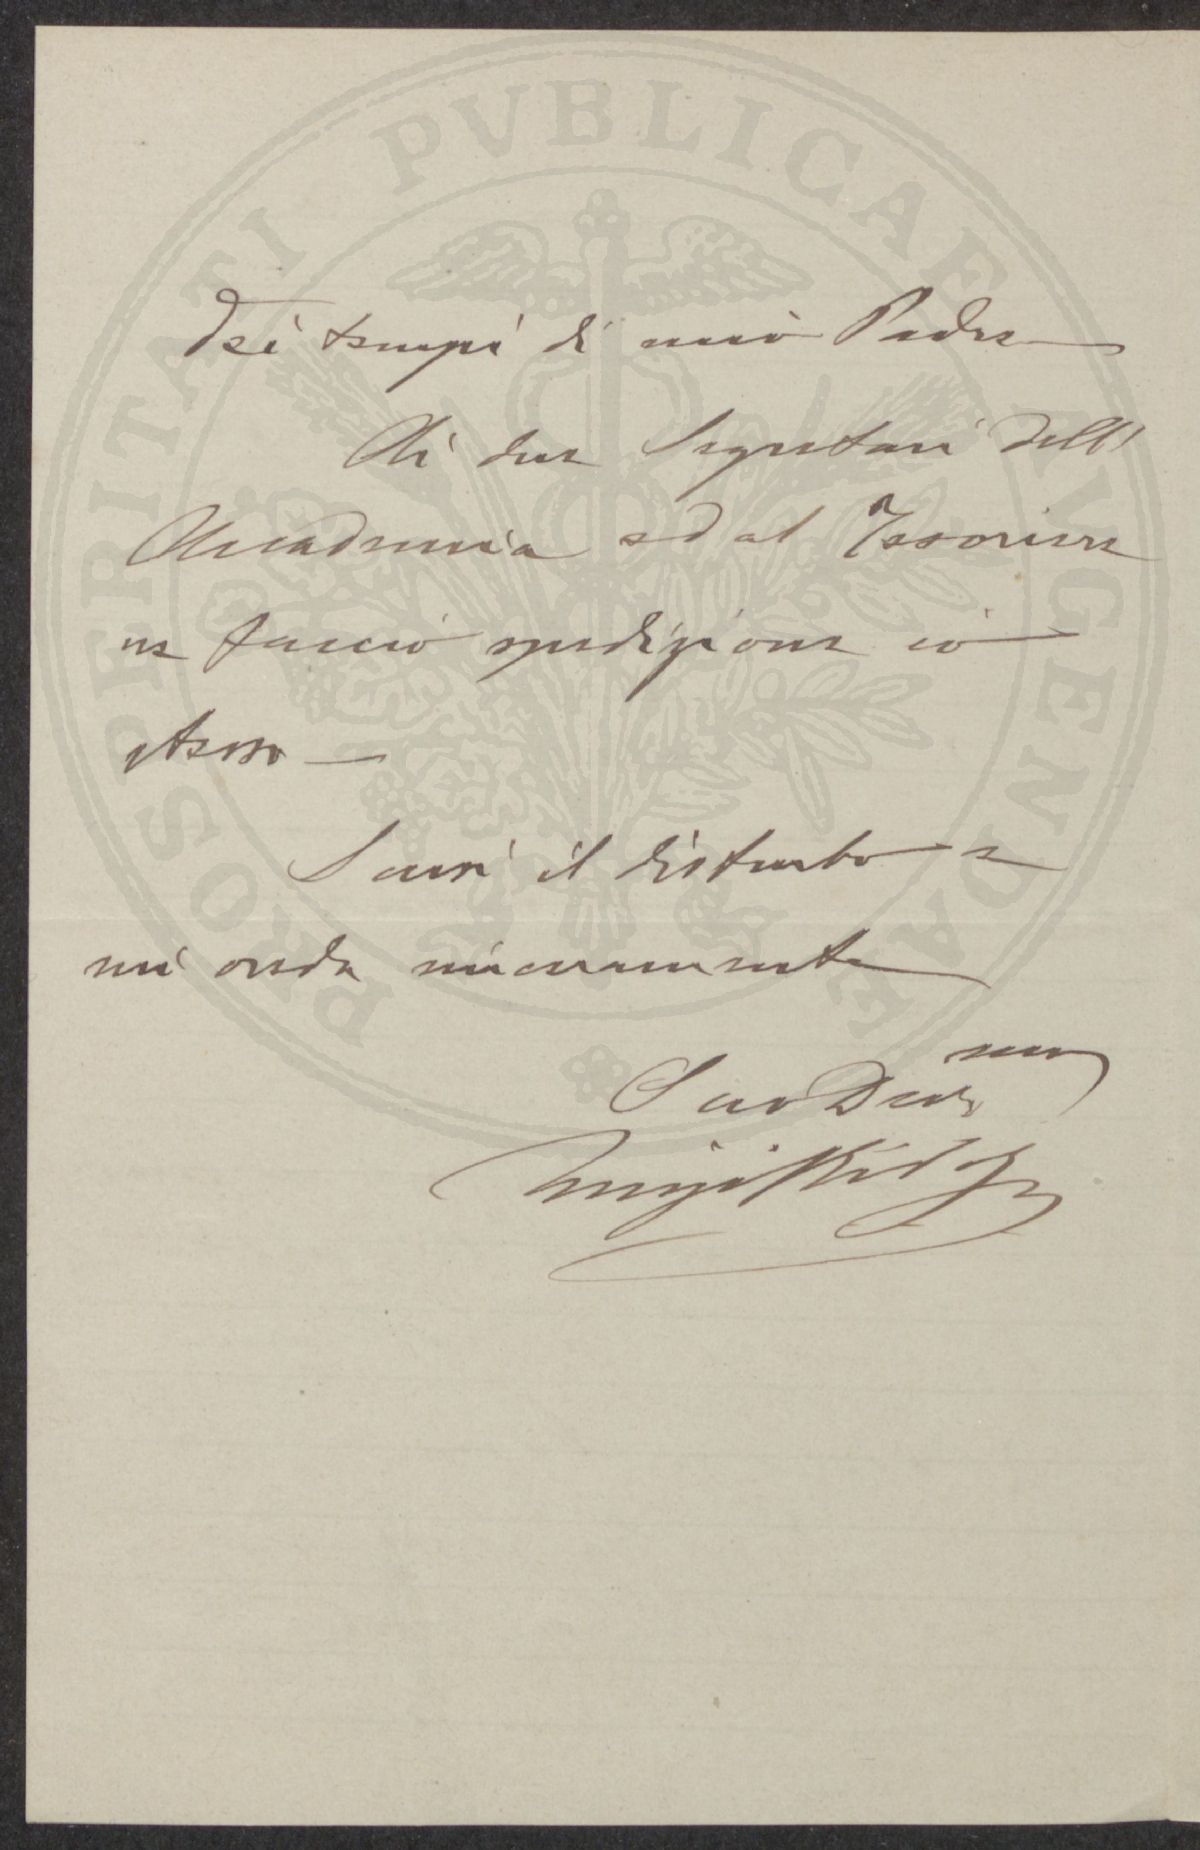 PROSPERITATI PVBLICAE AVGENDAE
Dei tempi di mio Padre
Ai due Segretari dell'
Accademia ed al Tesoriere
ne faccio spedizione io
stesso —
Scusi il disturbo e
mi creda sinceramente
Suo Dev.mo
Luigi Ridolfi